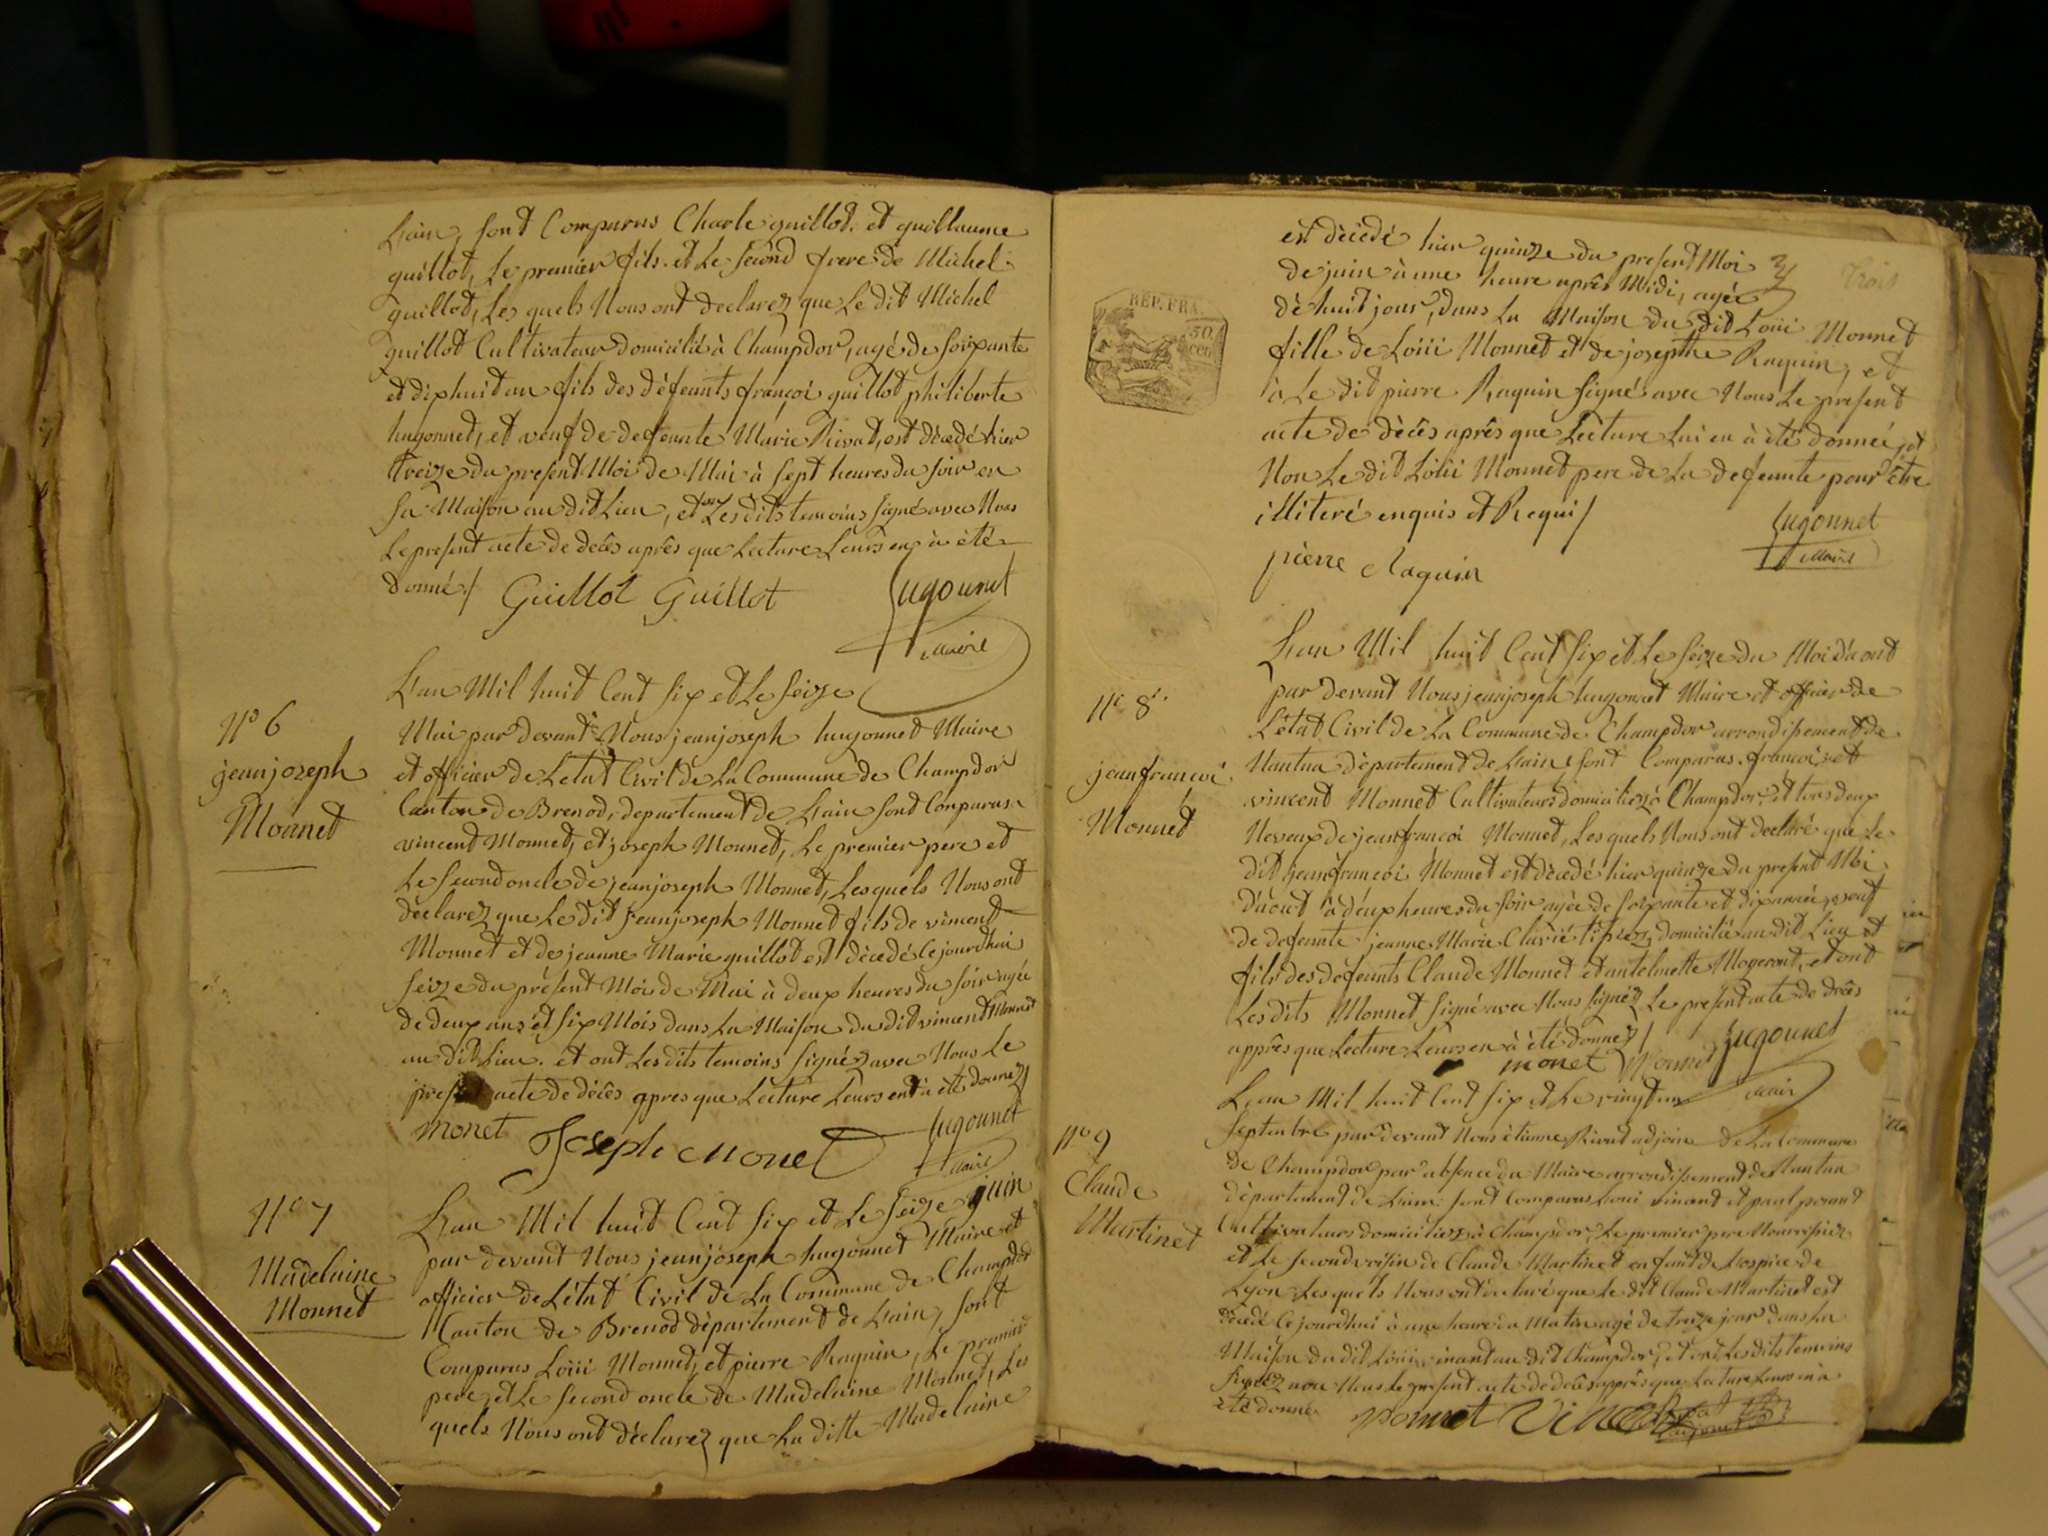 Lain, sont Comparus Charle guillot, et guillaume
guillot, Le premier fils et Le second frere de Michel
guillot, Les quels Nous ont declarez que Le dit Michel
guillot Cultivateur domicilié à Champdor, agé de soixante
et dix huit an fils des défeunts françoi guillot philiberte
hugonnet, et veuf de defeunte Marie Rivat, est décedé hier
treize du present Moi de Mai à sept heures du soir en
sa Maison au dit Lieu, et ont Lesdits temoins signé avec Nous
Le present acte de decès après que Lecture Leurs en à été
donné /. Guillot Guillot hugonnet
Maire
N° 6
jeanjoseph
Monnet
Lan Mil huit Cent six et Le seize
Mai par devant Nous jeanjoseph hugonnet Maire
et officier de Létat Civil de La Commune de Champdor
Canton de Brenod, departement de Lain sont Comparus
vincent Monnet, et joseph Monnet, Le premier pere et
Le second oncle de jeanjoseph Monnet, Lesquels Nous ont
declarez que Le dit jeanjoseph Monnet fils de vincent
Monnet et de jeanne Marie guillot est décedé Cejourdhui
seize du présent Moi de Mai à deux heures du soir agée
de deux ans et six Mois dans La Maison du dit vincent Monnet
au dit Lieu. et ont Lesdits temoins signéz avec Nous Le
present acte de décès apres que Lecture Leurs en à été donnez /
monet Joseph Monet hugonnet
Maire
N° 7
Madelaine
Monnet
Lan Mil huit Cent six et Le seize juin
par devant Nous jeanjoseph hugonnet Maire et
officier de Létat Civil de La Commune de Champdor
Canton de Brenod département de Lain, sont
Comparus Loüi Monnet, et pierre Raquin, Le premier
pere, et Le second oncle de Madelaine Monnet, Les
quels Nous ont déclarez que La ditte Madelaine
trois
REP. FRA.
50
cen
est décedé hier quinze du present Moi
de juin à une heure après Midi, agée
de huit jour, dans La Maison du dit Loüi Monnet
fille de Loüi Monnet et de josephe Raquin, et
à Le dit pierre Raquin signé avec Nous Le present
acte de décès après que Lecture Lui en à été donnée, et
Non Le dit Loüi Monnet pere de La defeunte pour être
illiteré enquis et Requi /
hugonnet
Maire
pierre Raquin
N° 8
jeanfrançoi
Monnet
Lan Mil huit Cent six et Le seize du Moi daout
par devant Nous jeanjoseph hugonnet Maire et officier de
Létat Civil de La Commune de Champdor arrondissement de
Nantua département de Lain sont Comparus françoi et
vincent Monnet Cultivateurs domiciliez à Champdor, et tous deux
Neveux de jeanfrançoi Monnet, Lesquels Nous ont declaré que Le
dit jeanfrançoi Monnet est décedé hier quinze du present Moi
daout à deux heures du soir agée de soixante et dix année, veuf
de defeunte jeanne Marie domicilié au dit Lieu et
fils des defeunts Claude Monnet et antelmette Mogeront, et ont
Lesdits Monnet signé avec Nous signéz Le present acte de décès
apprès que Lecture Leurs en à été donnez /
monet Monnet hugonnet
Maire
N° 9
Claude
Martinet
Lan Mil huit Cent six et Le vingt un
Septembre par devant Nous étienne Rivat adjoin de La Commune
de Champdor par absence du Maire arrondissement de Nantua
département de Lain sont Comparus Loui vincent et paul
Cultivateurs domiciliez à Champdor, Le premier pere Nourissier
et Le second voisin de Claude Martinet enfant de Lospice de
Lyon Lesquels Nous ont declaré que Le dit Claude Martinet est
décédé Cejourdhui à une heure du Matin agé de treize jour dans La
Maison du dit Loüi vincent au dit Champdor, et ont Lesdits temoins
signéz avec Nous Le present acte de décès apprès que Lecture Leurs en à
été donné